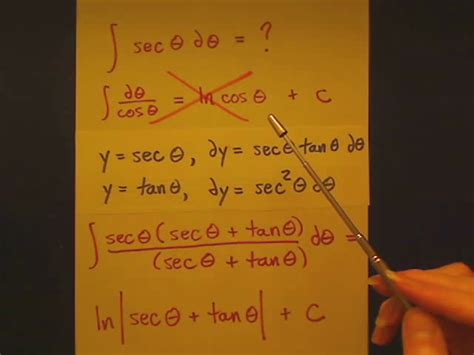 ∫ sec θ dθ = ?
∫ dθ/cos θ = ln cos θ + C
y = sec θ, dy = sec θ tan θ dθ
y = tan θ, dy = sec² θ dθ
∫ sec θ (sec θ + tan θ)/(sec θ + tan θ) dθ =
ln |sec θ + tan θ| + C